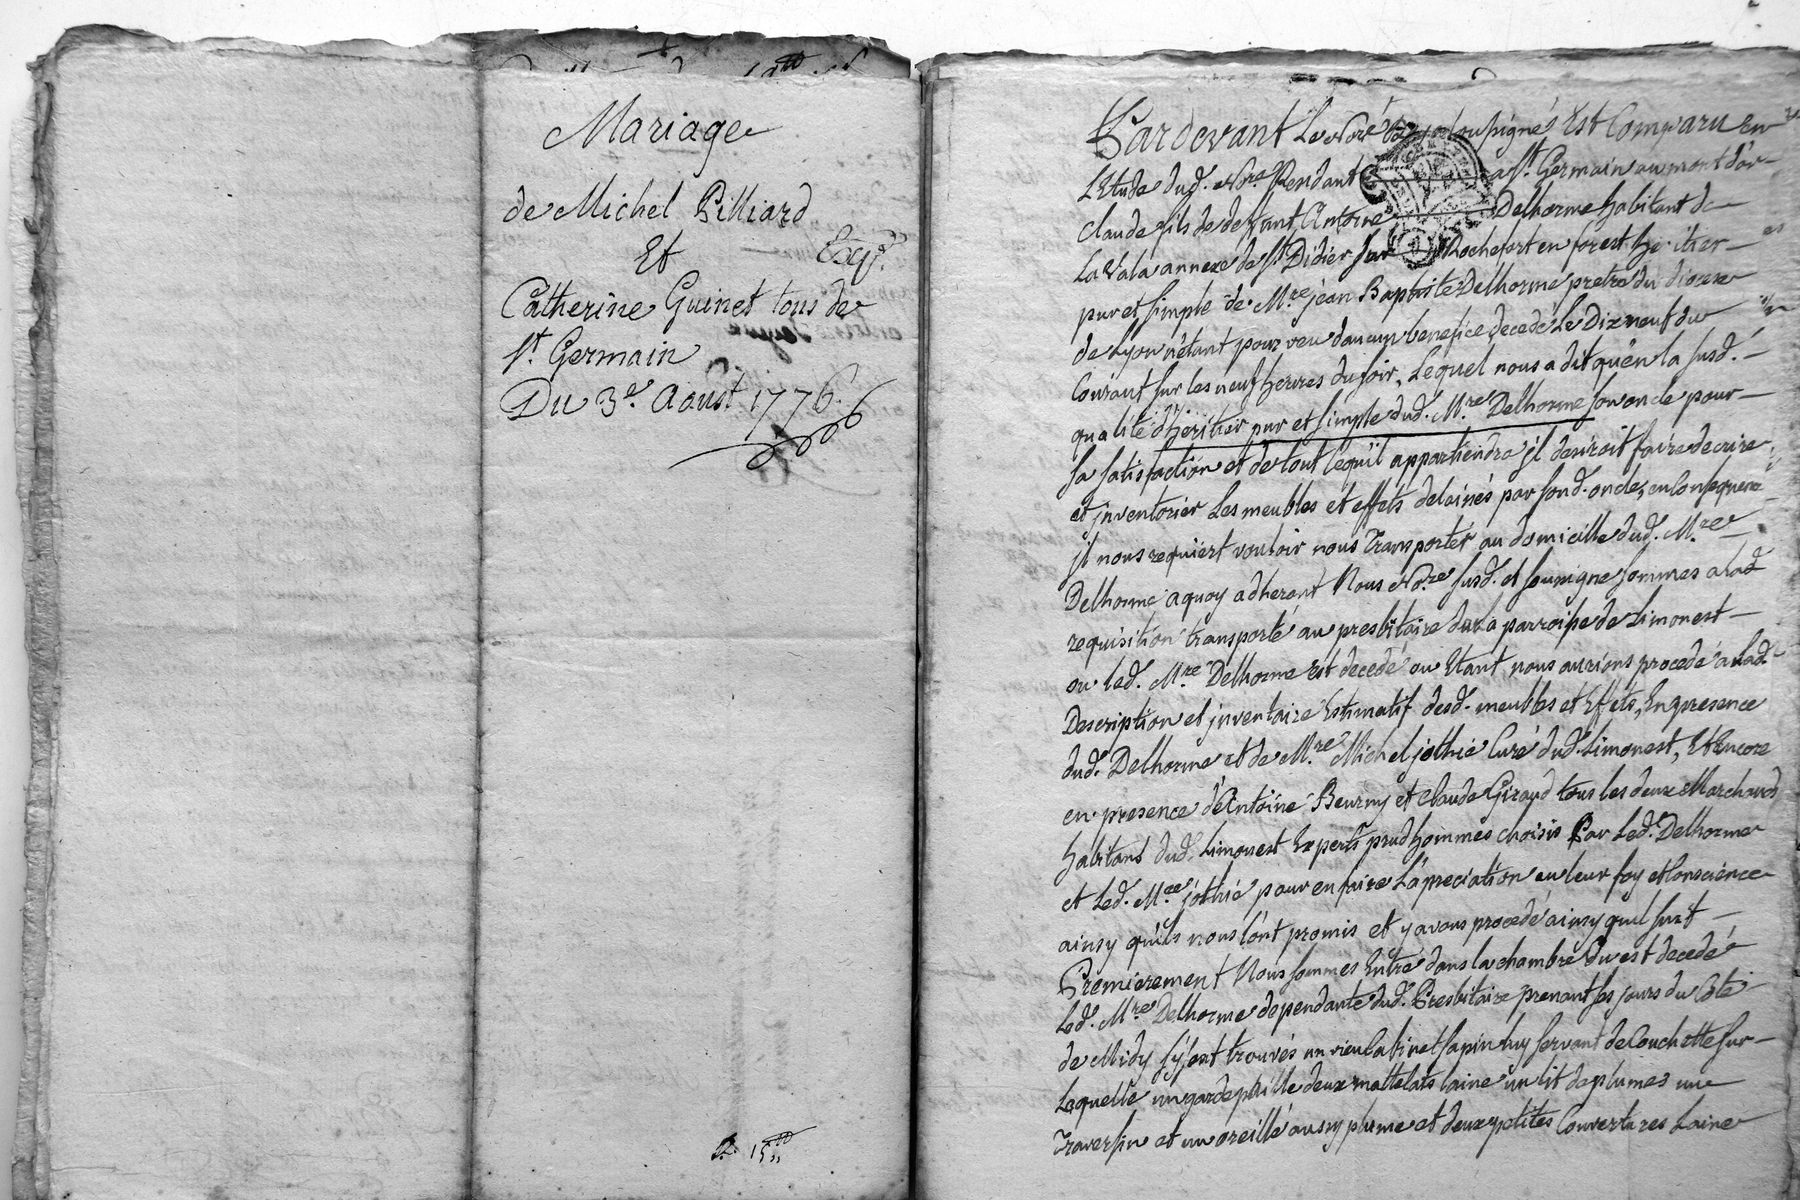 Mariage
de Michel Pilliard
Et
Expé.
Catherine Guinet tous de
St. Germain
Du 3e. Aoust 1776.
R. 15tt
Pardevant Le Nore Royal soussigné Est Comparu en
L'Etude dud. Nore Rendant a St. Germain au mont d'or
Claude fils de deffunt Antoine Delhorme habitant de
La Vala annexe de St. Didier sur Rochefort en forest heritier
pur et simple de Mre jean Baptiste Delhorme pretre du diocese
de Lyon n'étant pourveu daucun benefice decedé Le Dixneuf du
Courant sur les neuf heures du soir, Lequel nous a dit qu'en la susd.
qualité d'heritier pur et simple dud. Mre Delhorme son oncle pour
sa satisfaction et de tout lequil appartiendra il desiroit faire decrire
et inventorier Les meubles et effets delaines par sond. oncle, en consequence
il nous requiert vouloir nous Transporter au domicille dud. Mre
Delhorme a quoy adherant Nous Nore susd. et soussigné sommes a lad
requisition transporté au presbitaire de la parroisse de Limonest
ou led. Mre Delhorme est decedé ou Etant, nous aurions procedé a lad.
Description et inventaire Estimatif desd. meubles et Effets, En presence
dud. Delhorme et de Mre Michel jothié Curé dud. Limonest, Et Encore
en presence d'Antoine Beurny et Claude Giraud tous les deux Marchands
habitans dud. Limonest Experts prudhommes choisis Par Led. Delhorme
et Led. Mre jothié pour en faire L'apreciation en leur foy et Conscience
ainsy qu'ils nous l'ont promis et y avons procedé ainsy quil suit
Premierement Nous sommes Entré dans la chambre Ou est decedé
Led. Mre Delhorme dependante dud. Presbitaire prenant ses jours du Coté
de Midy s'y sont trouvés un vieu Cabinet sapin luy servant de Couchette sur
Laquelle un gardepaille deux mattelats laine un lit de plumes une
Traversin et un oreillé aussy plume et deux petites Couvertures Laine